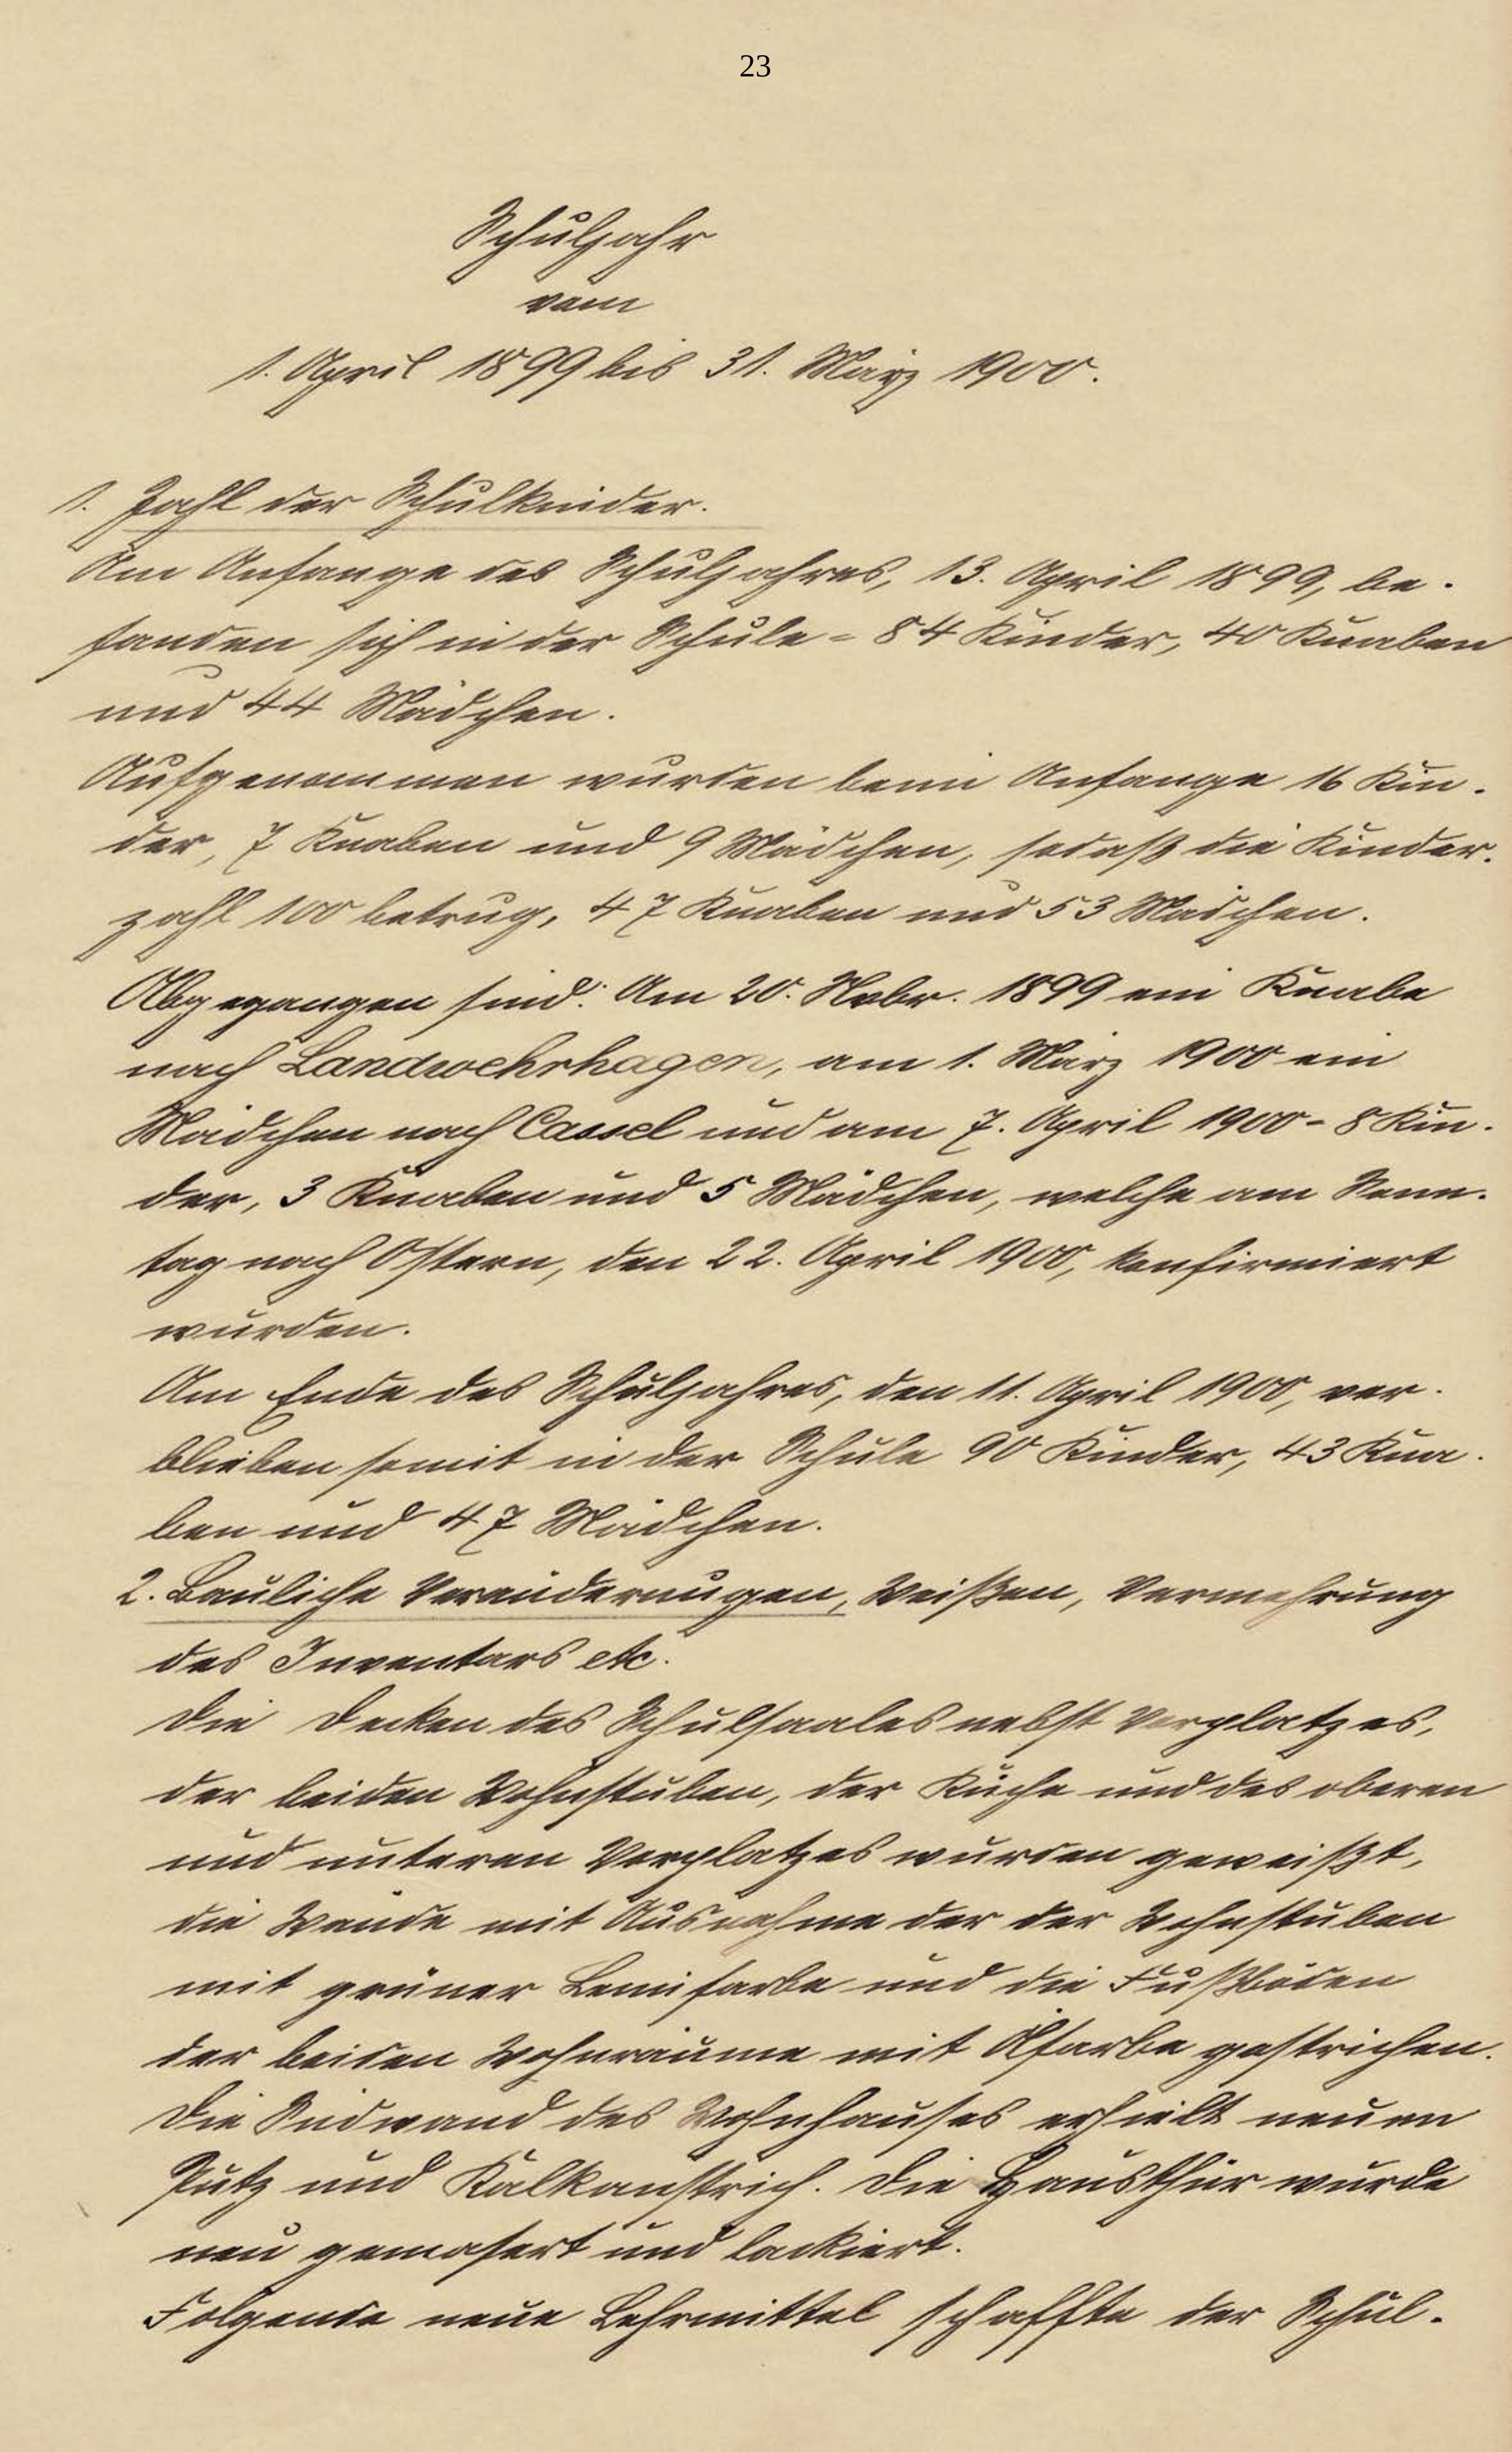 23
Schuljahr
vom
1. April 1899 bis 31. März 1900.
1. Zahl der Schulkinder.
Am Anfange des Schuljahres, 13. April 1899, be-
fanden sich in der Schule = 84 Kinder, 40 Knaben
und 44 Mädchen.
Aufgenommen wurden beim Anfange 16 Kin-
der, 7 Knaben und 9 Mädchen, sodaß die Kinder-
zahl 100 betrug, 47 Knaben und 53 Mädchen.
Abgegangen sind: Am 20. Novbr. 1899 ein Knabe
nach Landwehrhagen, am 1. März 1900 ein
Mädchen nach Cassel und am 7. April 1900 = 8 Kin-
der, 3 Knaben und 5 Mädchen, welche am Sonn-
tag nach Ostern, den 22. April 1900, konfirmiert
wurden.
Am Ende des Schuljahres, den 11. April 1900, ver-
blieben somit in der Schule 90 Kinder, 43 Kna-
ben und 47 Mädchen.
2. Bauliche Veränderungen, Weißen, Vermehrung
des Inventars etc.
Die Decken des Schulsaales nebst Vorplatzes,
der beiden Wohnstuben, der Küche und des oberen
und unteren Vorplatzes wurden geweißt,
die Wände mit Ausnahme der der Wohnstuben
mit grüner Leimfarbe und die Fußböden
der beiden Wohnräume mit Ölfarbe gestrichen.
Die Südwand des Wohnhauses erhielt neuen
Putz und Kalkanstrich. Die Hausthür wurde
neu gemasert und lackiert.
Folgende neue Lehrmittel schaffte der Schul-